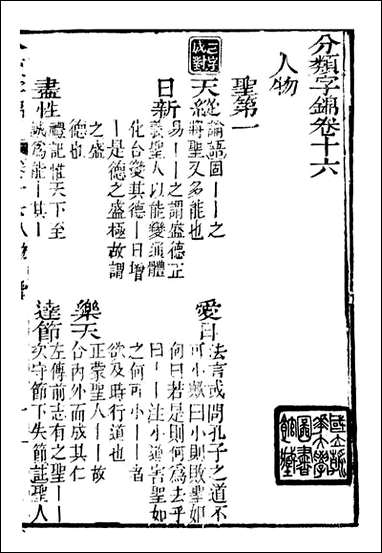 分類字錦卷十六
人物
聖第一
二字成對
天縱
論語固丨丨之
將聖又多能也
愛日
法言或問孔子之道不
可小歟曰小則敗聖如
何曰若是則何為去乎
曰丨丨注小道害聖如
之何可小丨丨者
欲及時行道也
日新
易丨丨之謂盛德正
義聖人以能變通體
化合變其德丨日增
丨是德之盛極故謂
之盛
德也
樂天
正蒙聖人丨丨故
合內外而成其仁
盡性
禮記惟天下至
誠為能丨其丨
達節
左傳前志有之聖丨丨
次守節下失節註聖人
國立浙
江大學
圖書
館藏